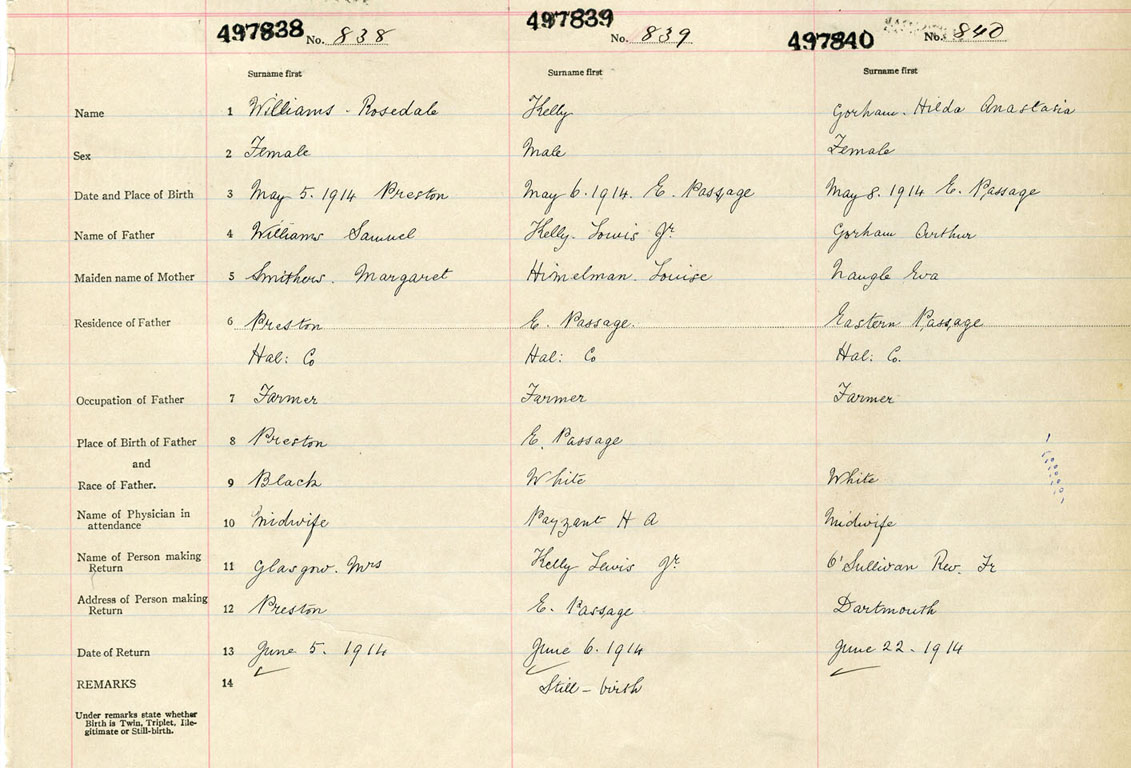 497838 No. 838 497839 No. 839 497840 No. 840
Surname first Surname first Surname first
Name 1 Williams - Rosedale Kelly Gorham. Hilda Anastasia
Sex 2 Female Male Female
Date and Place of Birth 3 May 5. 1914 Preston May 6. 1914. E. Passage May 8. 1914 E. Passage
Name of Father 4 Williams Samuel Kelly. Lowis Jr. Gorham Arthur
Maiden name of Mother 5 Smithers. Margaret Himelman. Louise Naugle Eva
Residence of Father 6 Preston E. Passage. Eastern Passage
Hal: Co Hal: Co Hal: Co.
Occupation of Father 7 Farmer Farmer Farmer
Place of Birth of Father 8 Preston E. Passage
and
Race of Father. 9 Black White White
Name of Physician in attendance 10 Midwife Payzant H A Midwife
Name of Person making Return 11 Glasgow. Mrs Kelly Lewis Jr. O'Sullivan Rev. Fr
Address of Person making Return 12 Preston E. Passage Dartmouth
Date of Return 13 June 5. 1914 June 6. 1914 June 22. 1914
REMARKS 14 Still - birth
Under remarks state whether
Birth is Twin, Triplet, Ille-
gitimate or Still-birth.